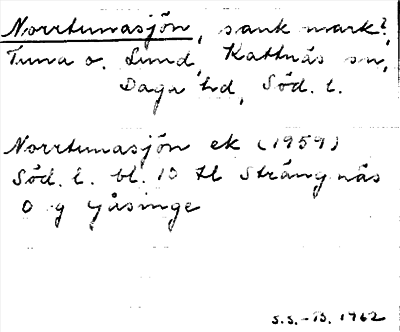 Norrtunasjön, sank mark?,
Tuna o. Lund, Kattnäs sn,
Daga hd, Söd. l.
Norrtunasjön ek (1959)
Söd. l. bl. 10 tl Strängnäs
O g Gåsinge
S.S.-B. 1962